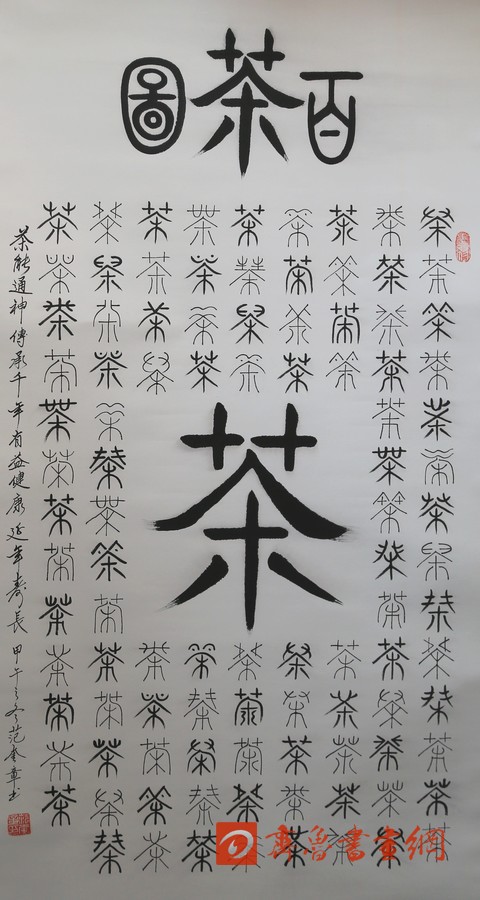 百茶圖
茶茶茶茶茶茶茶茶茶茶茶茶茶茶
茶茶茶茶茶茶茶茶茶茶茶茶茶茶
茶茶茶茶
茶茶茶茶
茶茶茶茶
茶茶茶茶
茶茶茶茶
茶
茶茶茶茶茶
茶茶茶茶茶
茶茶茶茶茶
茶茶茶茶茶
茶茶茶茶茶
茶茶茶茶茶茶茶茶茶茶茶茶茶茶
茶茶茶茶茶茶茶茶茶茶茶茶茶
茶能通神傳承千年有益健康延年壽長甲午之冬范奎章书
齊魯書畫網